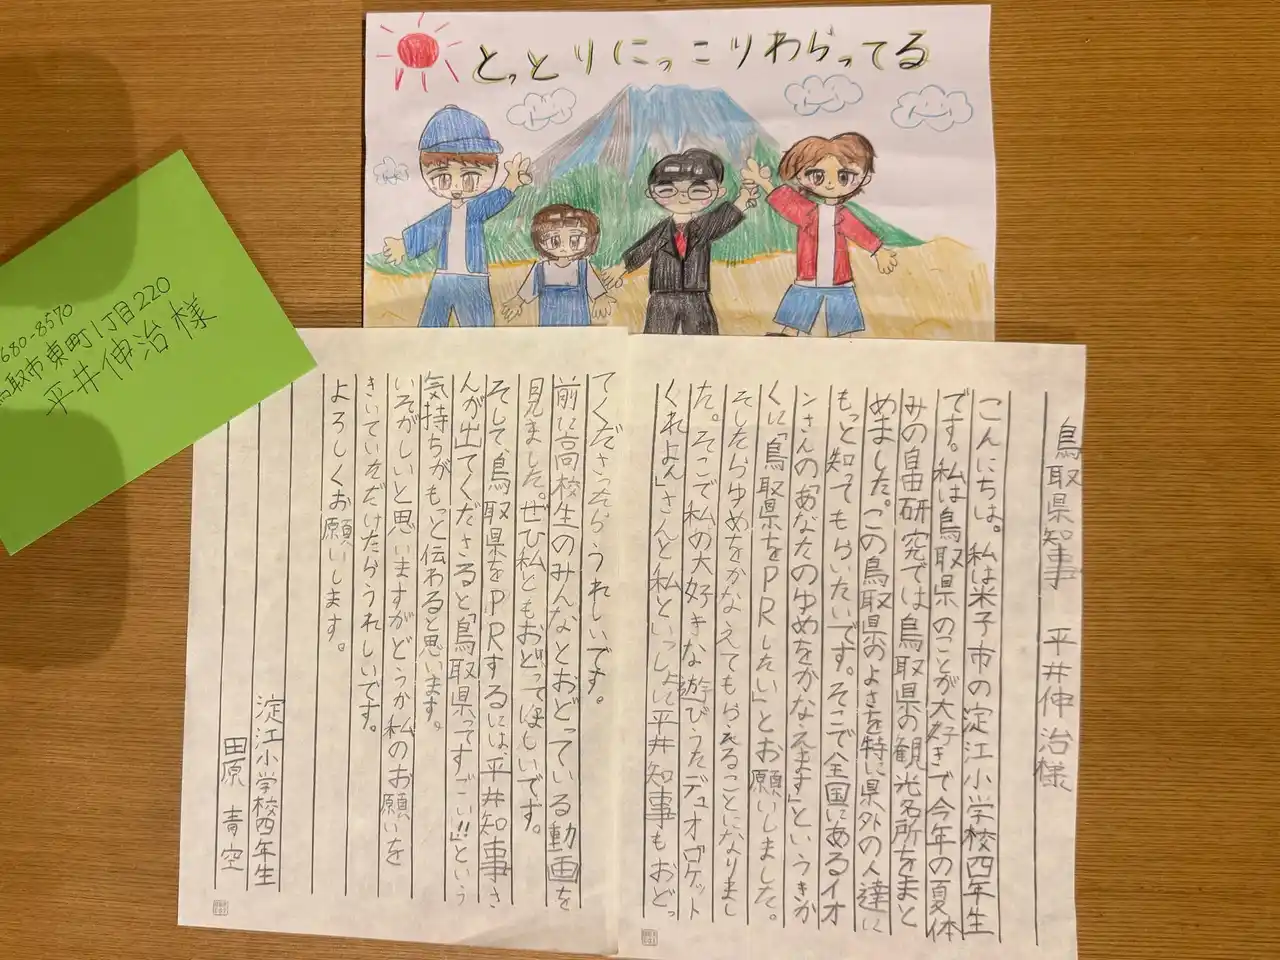 とっとりにっこりわらってる
680-8570
鳥取市東町1丁目220
平井伸治様
鳥取県知事 平井伸治様
こんにちは。私は米子市の淀江小学校四年生
です。私は鳥取県のことが大好きで今年の夏休
みの自由研究では鳥取県の観光名所をまと
めました。この鳥取県のよさを特に県外の人達に
もっと知ってもらいたいです。そこで全国にあるイオ
ンさんの「あなたのゆめをかなえます」というきか
くに「鳥取県をPRしたい」とお願いしました。
そしたらゆめをかなえてもらえることになりまし
た。そこで私の大好きな遊びうたデュオ「ロケット
くれよん」さんと私といっしょに平井知事もおどっ
てくださったらうれしいです。
前に高校生のみんなとおどっている動画を
見ました。ぜひ私ともおどってほしいです。
そして、鳥取県をPRするには、平井知事さ
んが出てくださると「鳥取県ってすごい!!」という
気持ちがもっと伝わると思います。
いそがしいと思いますがどうか私のお願いを
きいていただけたらうれしいです。
よろしくお願いします。
淀江小学校四年生
田原 青空